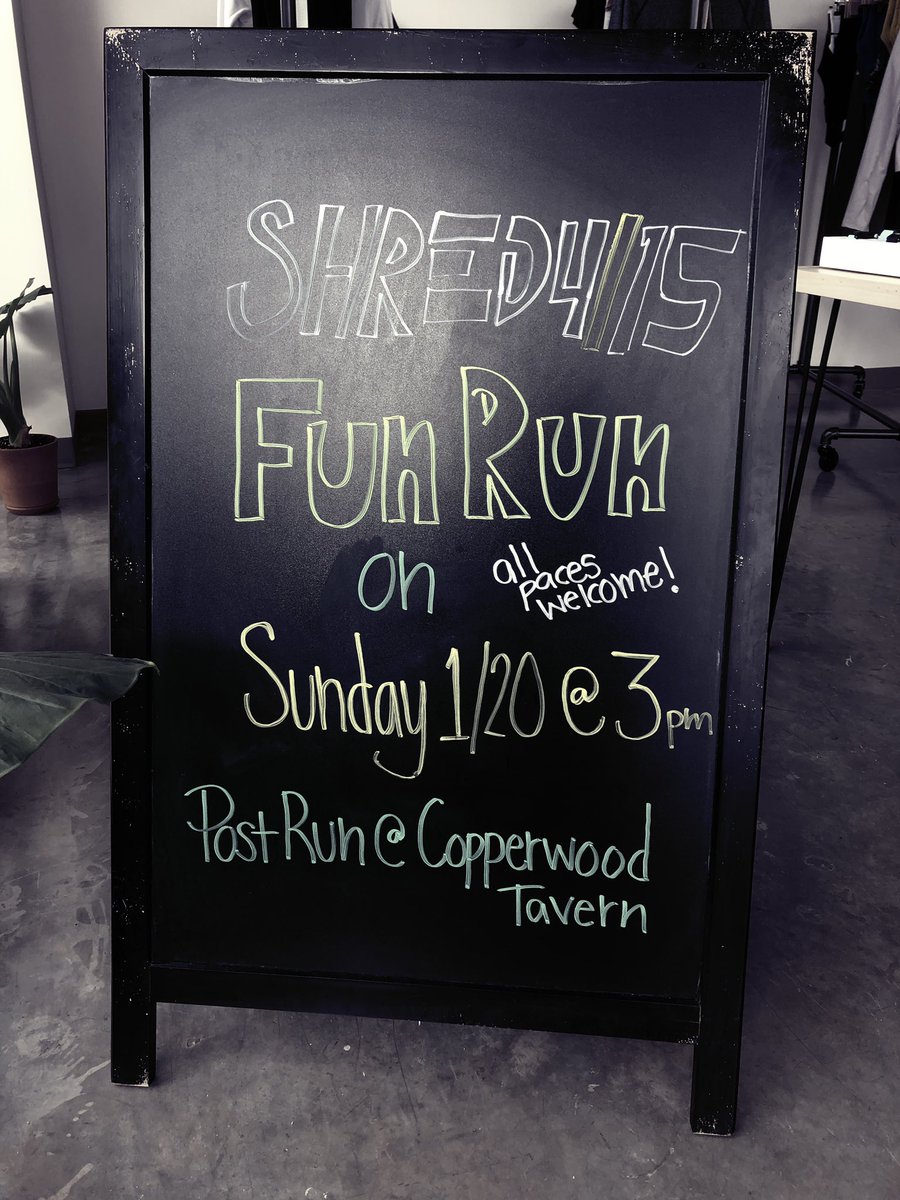 SHRED415
Fun Run
on
all
paces
welcome!
Sunday 1/20 @ 3pm
Post Run @ Copperwood
Tavern